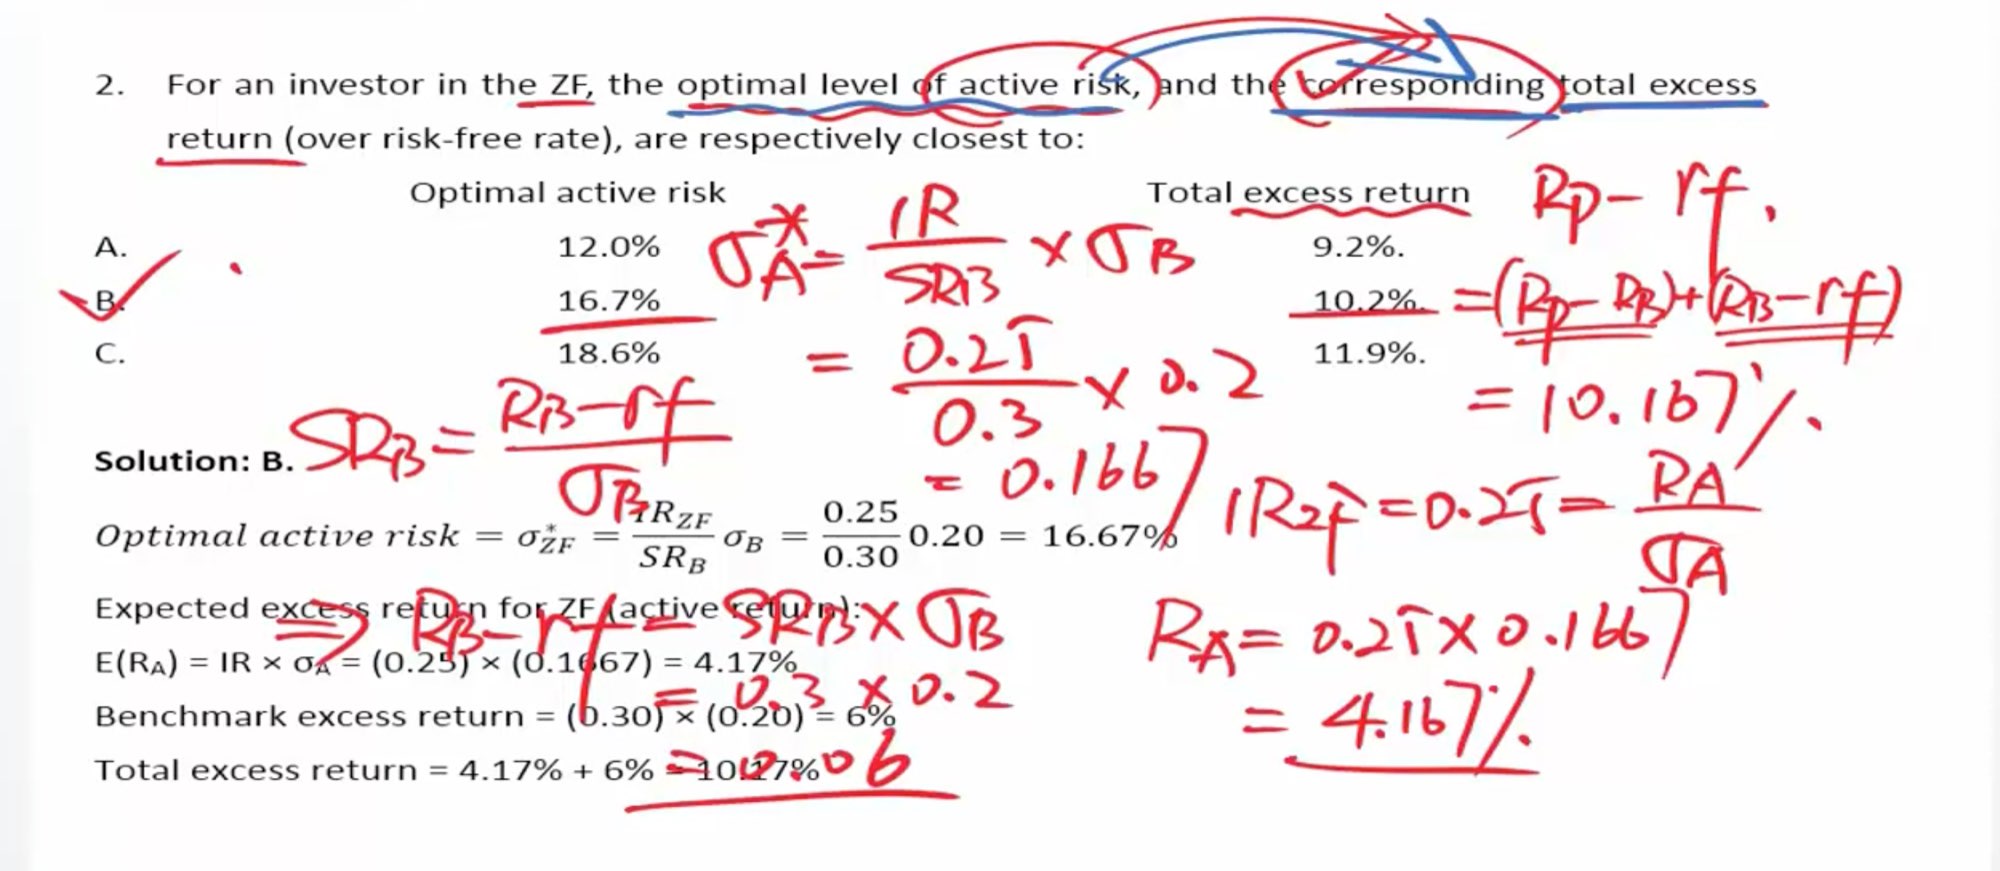 2. For an investor in the ZF, the optimal level of active risk, and the corresponding total excess
return (over risk-free rate), are respectively closest to:
Optimal active risk Total excess return
A. 12.0% 9.2%.
B. 16.7% 10.2%.
C. 18.6% 11.9%.
σ*A = IR / SRB × σB
= 0.25 / 0.3 × 0.2
= 0.1667
Rp - rf.
= (Rp - RB) + (RB - rf)
= 10.167%.
SRB = RB - rf / σB
Solution: B.
Optimal active risk = σ*ZF = IRZF / SRB σB = 0.25 / 0.30 0.20 = 16.67%
IRZF = 0.25 = RA / σA
Expected excess return for ZF (active return):
⇒ RB - rf = SRB × σB
RA = 0.25 × 0.1667
E(RA) = IR × σA = (0.25) × (0.1667) = 4.17%
= 0.3 × 0.2
= 4.167%.
Benchmark excess return = (0.30) × (0.20) = 6%
Total excess return = 4.17% + 6% = 10.17%
= 0.06